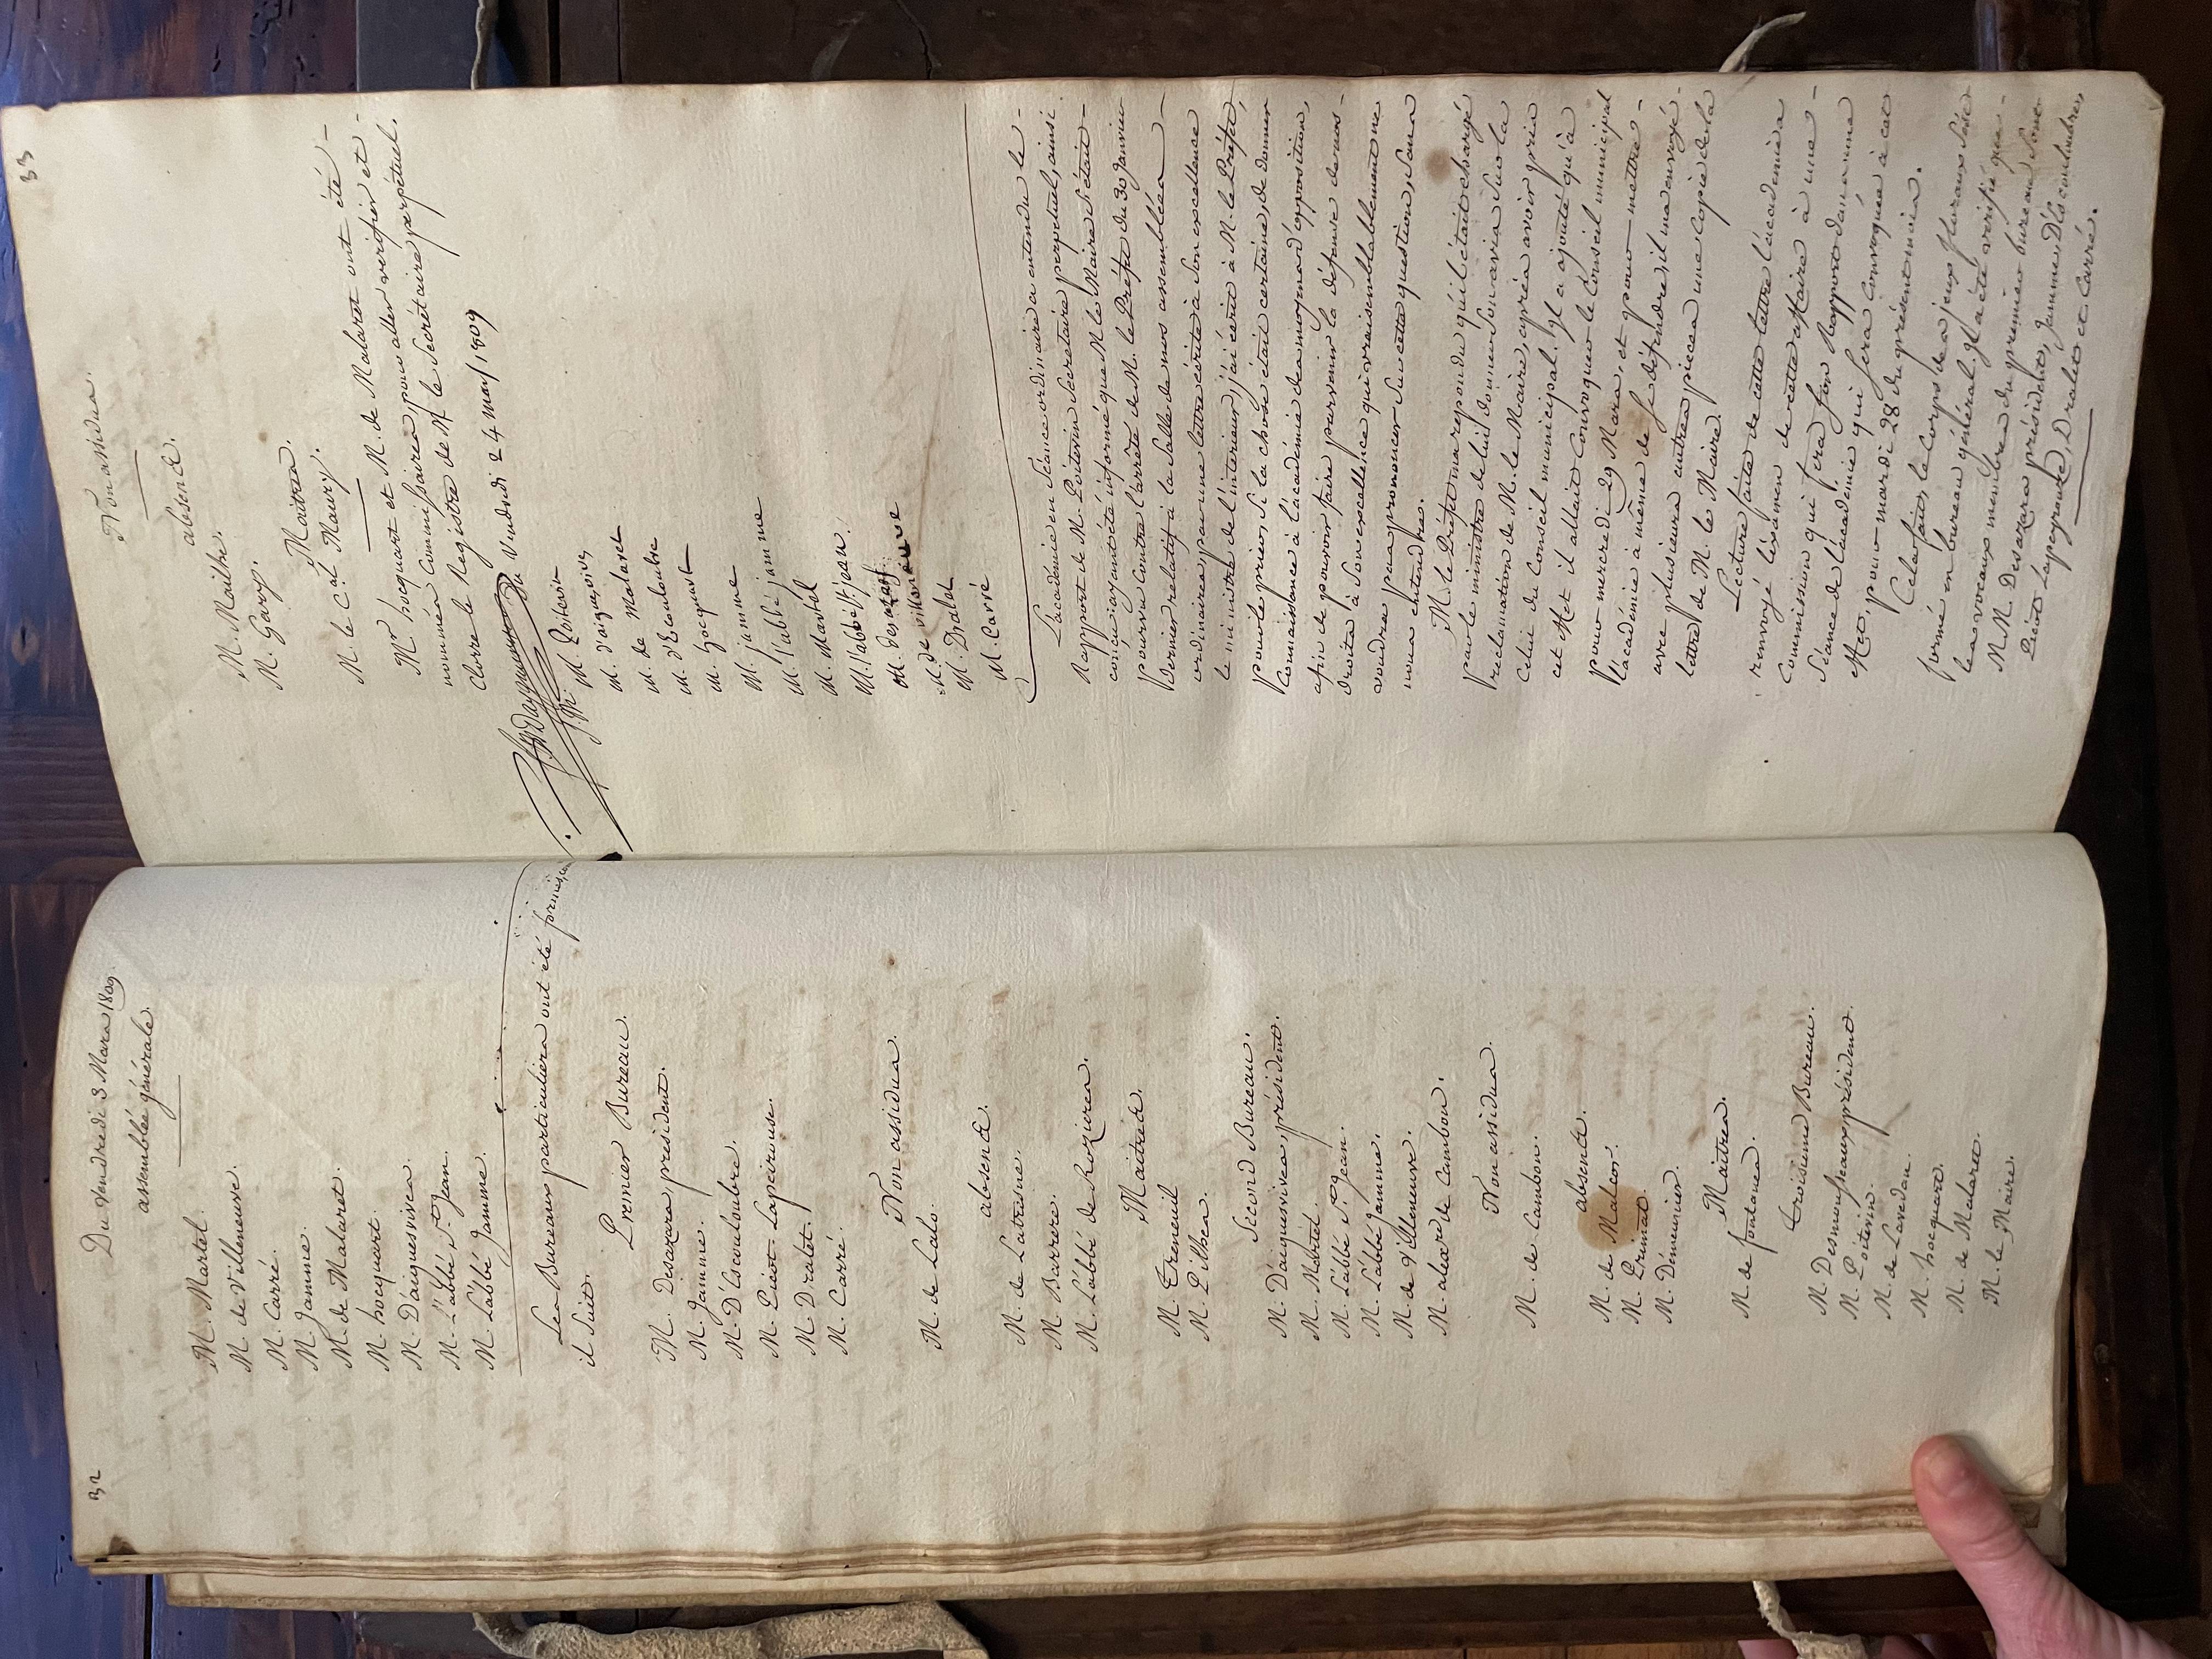 32
Du Vendredi 3 Mars 1809
assemblée générale.
M. Martel.
M. de Villeneuve.
M. Carré.
M. Jamme.
M. de Malaret.
M. hocquart.
M. D'aiguesvives.
M. L'abbé St. Jean.
M. L'abbé Jamme.
Les Bureaux particuliers ont été formés, comme
il Suit.
Premier Bureau.
M. Desazars, président.
M. Jamme.
M. D'Escouloubre.
M. Picot-Lapeirouse.
M. Dralet.
M. Carré.
Non assidus.
M. de Lalo.
absents.
M. de Latresne.
M. Barrere.
M. L'abbé de Rozieres.
Maitres.
M. Treneuil
M. Pilhes.
Second Bureau.
M. D'aiguesvives, président.
M. Martel.
M. L'abbé St. Jean.
M. L'abbé Jamme.
M. de Villeneuve.
M. alexdre. de Cambon.
Non assidus.
M. de Cambon.
absents.
M. de Malcor.
M. Primat.
M. Démeunier.
Maitres.
M. de fontanes.
Troisieme Bureau.
M. Desmousseaux, président.
M. Poitevin.
M. de Lavedan.
M. hocquart.
M. de Malaret.
M. le Maire.
33
Non assidus.
absents.
M. Mailhe.
M. Gary.
Maitres.
M. le C.al Maury.
Mrs hocquart et M. de Malaret ont été
nommés Commissaires, pour aller vérifier et
clorre le Registre de M. le Secrétaire perpétuel.
du Vendredi 24 Mars 1809
M. Poitevin
M. d'aiguesvives
M. de Malaret
M. d'Escouloubre
M. hocquart
M. jamme
M. l'abbé jamme
M. Martel
M. l'abbé St. jean.
M. desazars.
M. de villeneuve
M. Dralet
M. Carré
L'académie en Séance ordinaire a entendu le
Rapport de M. Poitevin Secretaire perpetuel, ainsi
conçu: ayant été informé que M. le Maire S'était
pourvu Contre l'arrêté de M. le Préfet du 30 Janvier
dernier relatif à la Salle de nos assemblées
ordinaires, par une lettre écrite à Son excellence
le ministre de l'interieur, j'ai écrit à M. le Préfet,
pour le prier, Si la chose était certaine, de donner
Connaissance à l'académie des moyens d'opposition,
afin de pouvoir faire parvenir la défense de nos
droits à Son excellence qui vraisemblablement ne
voudra pas prononcer Sur cette question, Sans
nous entendre.
M. le Préfet m'a repondu qu'il était chargé
par le ministre de lui donner Son avis Sur la
reclamation de M. le Maire, après avoir pris
Celui du Conseil municipal. Il a ajouté qu'à
cet effet il allait Convoquer le Conseil municipal
pour mercredi 29 Mars, et pour mettre
l'académie à même de se défendre, il m'a envoyé
avec plusieurs autres pieces une Copie de la
lettre de M. le Maire.
Lecture faite de cette lettre l'académie a
renvoyé l'éxamen de cette affaire à une
Commission qui fera Son Rapport dans une
Séance de l'académie qui Sera Convoquée à cet
effet, pour mardi 28 du présent mois.
Cela fait, le Corps des jeux floraux S'est
formé en bureau général. Il a été vérifié que
les vocaux membres du premier bureau Sont
MM. Desazars président, Jamme, D'Escouloubre,
Picot Lapeyrouse, Dralet et Carré.